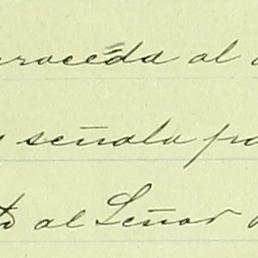 proceda al
señala
al Señor